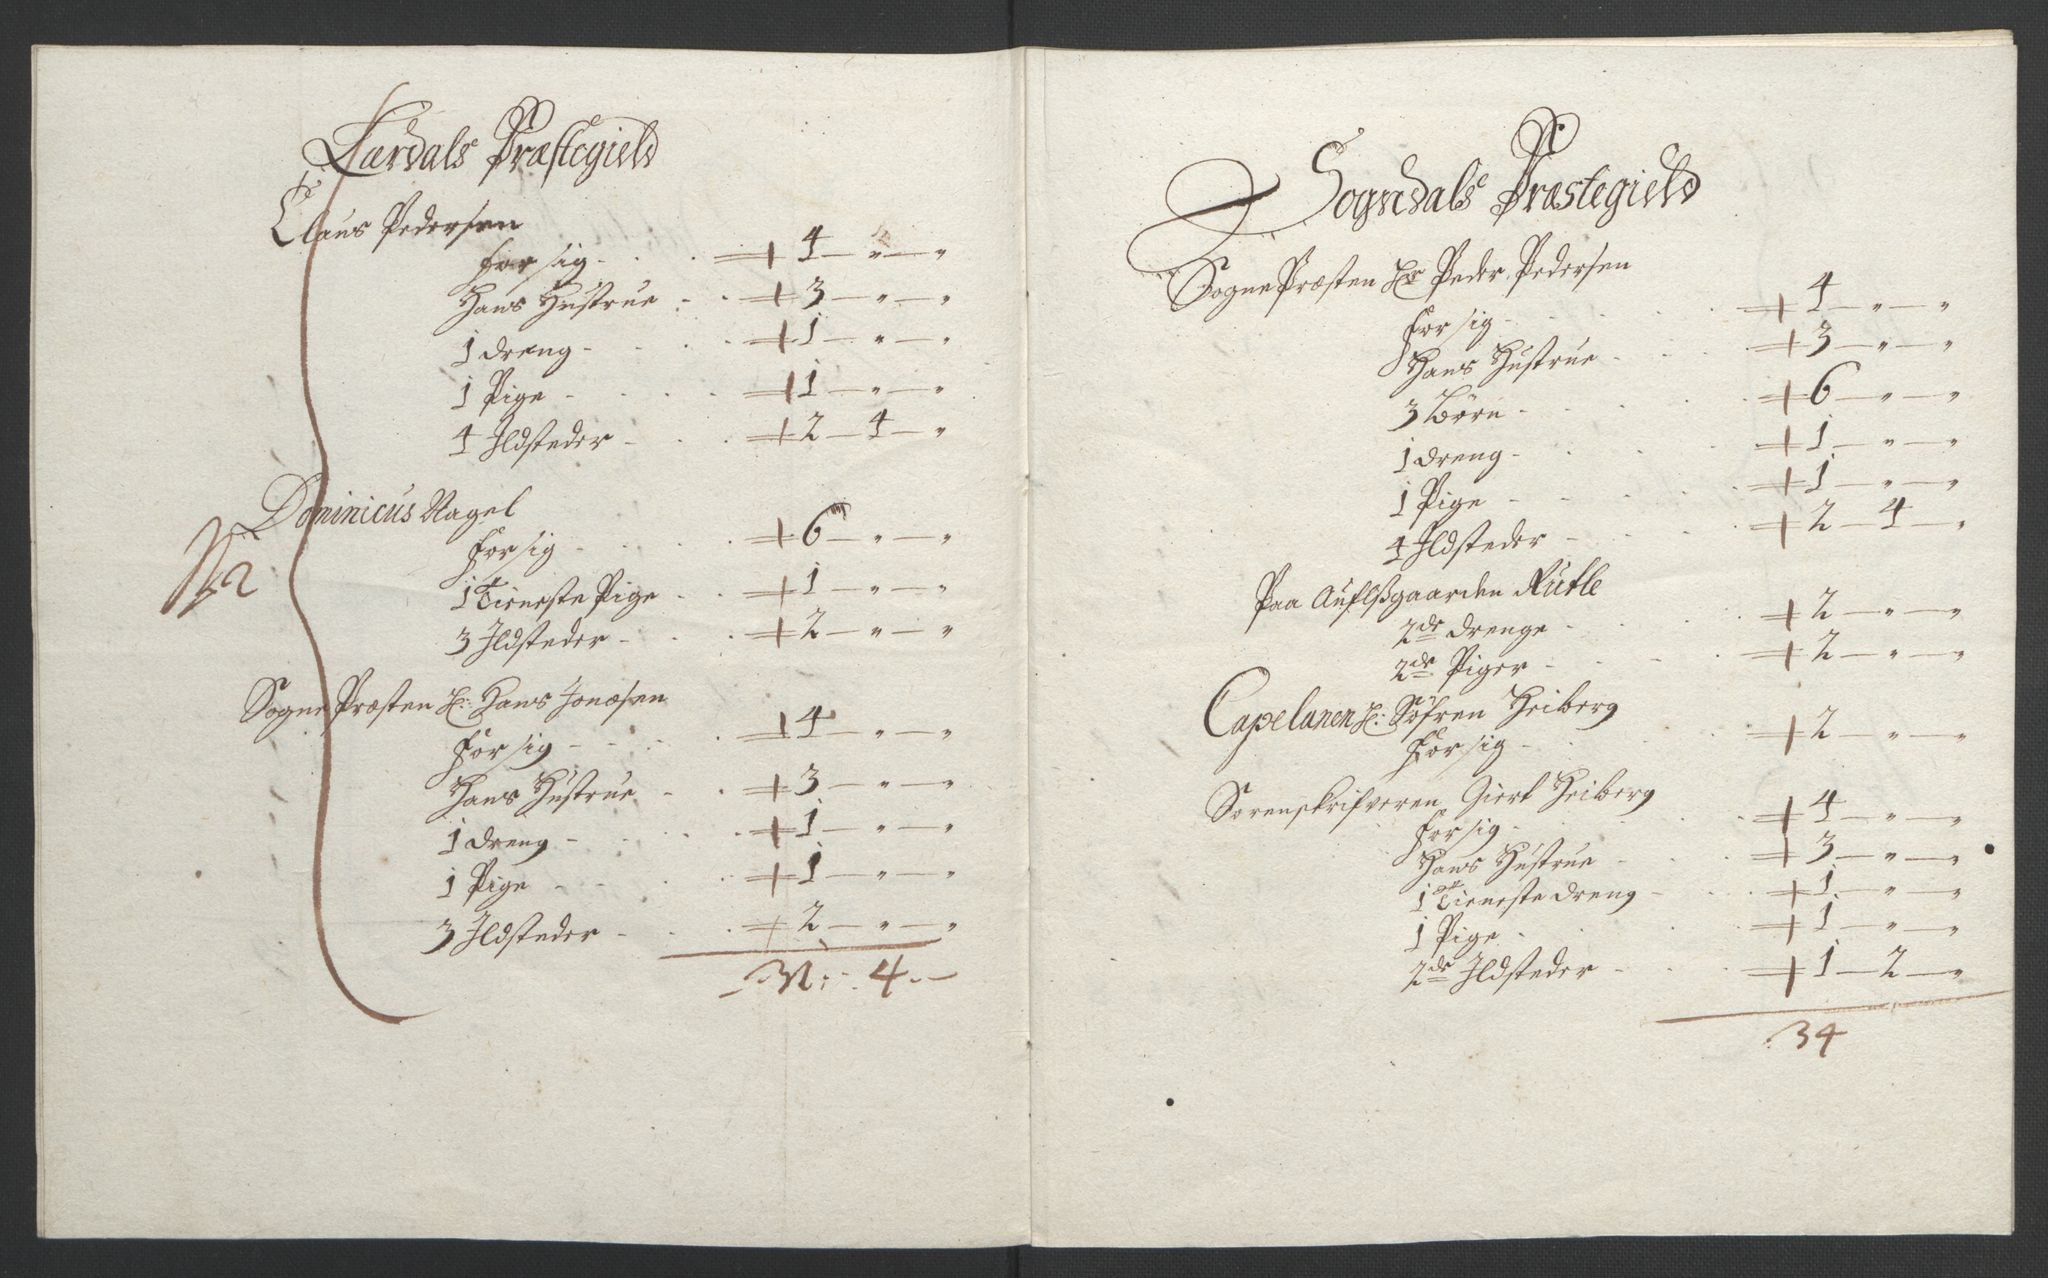 Lærdals Præstegield
Claus Pedersen
for sig - 4 - " - "
Hans Hustrue - 3 - " - "
1 dreng - 1 - " - "
1 Pige - 1 - " - "
4 Ildsteder - 2 - 4 - "
Dominicus Nagel
for sig - 6 - " - "
1 Tieneste Pige - 1 - " - "
3 Ildsteder - 2 - " - "
Sogne Præsten H: Hans Jonæsen
for sig - 4 - " - "
Hans Hustrue - 3 - " - "
1 dreng - 1 - " - "
1 Pige - 1 - " - "
3 Ildsteder - 2 - " - "
31 : 4 -
Sogndals Præstegield
Sogne Præsten Hr Peder Pedersen
for sig - 4 - " - "
Hans Hustrue - 3 - " - "
3 Börn - 6 - " - "
1 dreng - 1 - " - "
1 Pige - 1 - " - "
4 Ildsteder - 2 - 4 - "
Paa Auflsgaarden Rutle
2de drenge - 2 - " - "
2de Piger - 2 - " - "
Capelanen H: Söfren Heiberg
for sig - 2 - " - "
Sorenskrifveren Giert Heiberg
for sig - 4 - " - "
Hans Hustrue - 3 - " - "
1 Tieneste dreng - 1 - " - "
1 Pige - 1 - " - "
2de Ildsteder - 1 - 2 - "
34